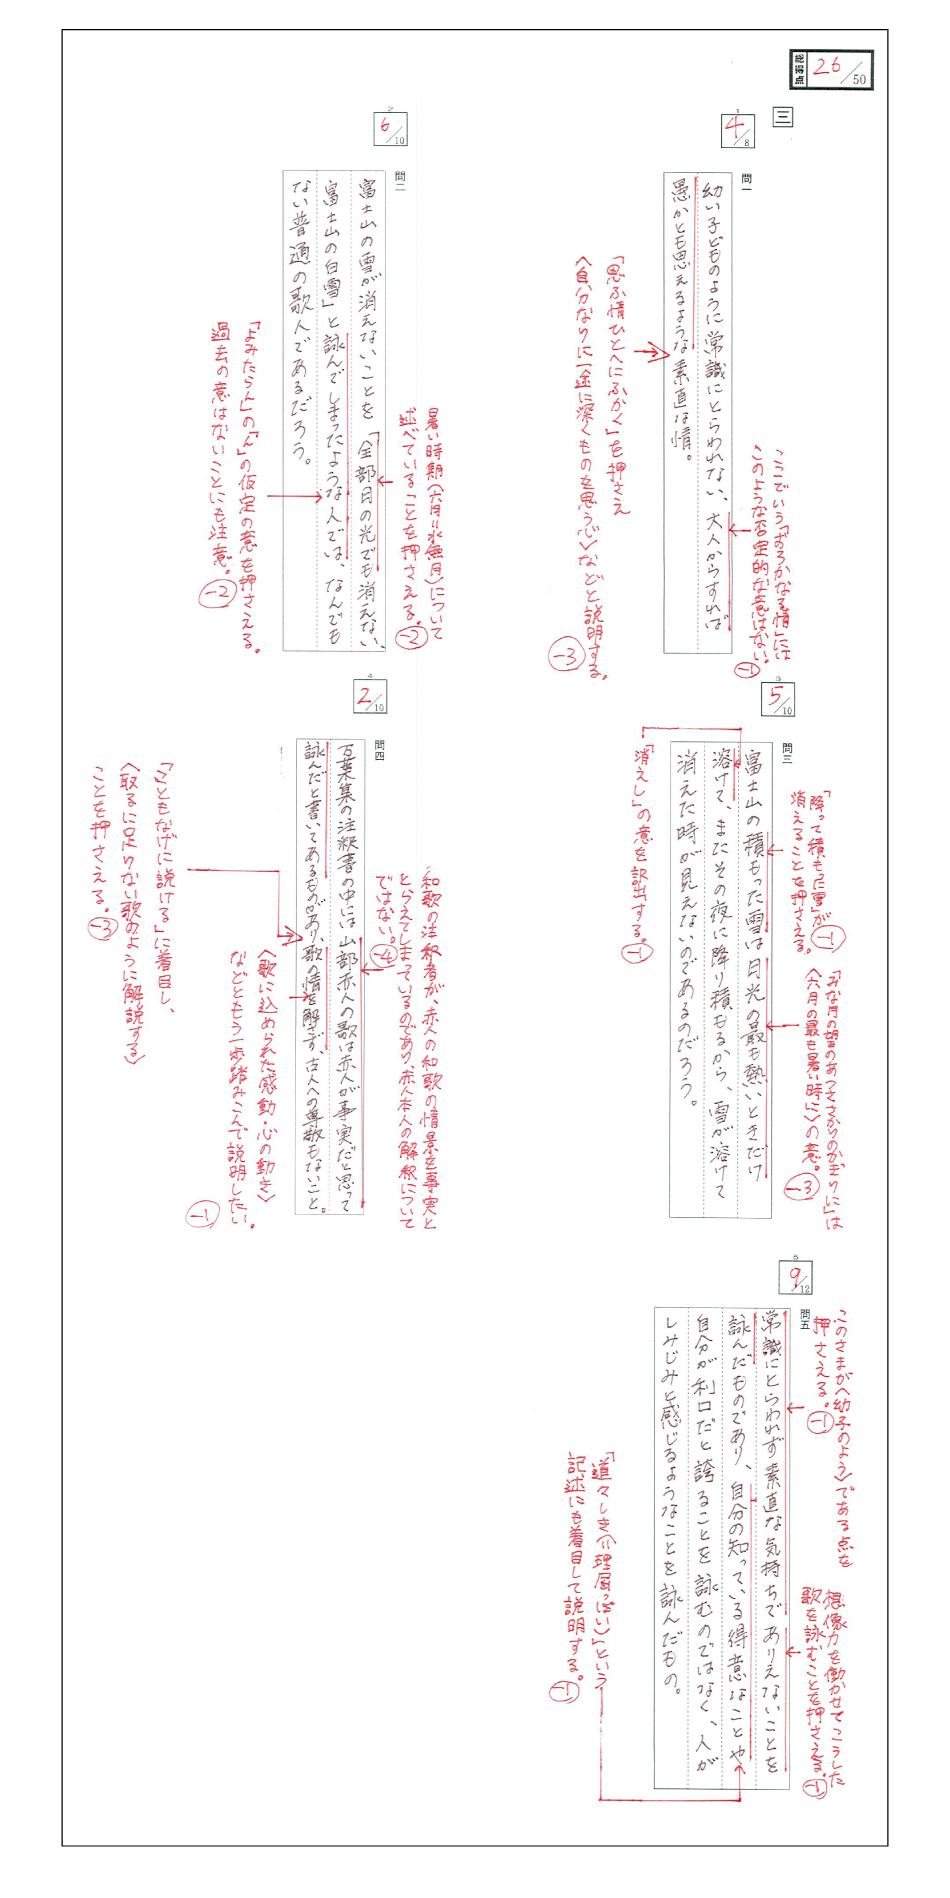 総得点
26/50
三
1
4/8
問一
幼い子どものように常識にとらわれない、大人からすれば
愚かとも思えるような素直な情。
ここでいう「おろかなる情」には
このような否定的な意はない。
-1
「思ふ情ひとへにふかく」を押さえ
〈自分なりに一途に深くものを思う心〉などと説明する。
-3
2
6/10
問二
富士山の雪が消えないことを「全部日の光でも消えない、
富士山の白雪」と詠んでしまったような人では、なんでも
ない普通の歌人であるだろう。
暑い時期(六月=水無月)について
述べていることを押さえる。
-2
「よみたらん」の「ん」の仮定の意を押さえる。
過去の意はないことにも注意。
-2
3
5/10
問三
富士山の積もった雪は日光の最も熱いときだけ
溶けて、またその夜に降り積もるから、雪が溶けて
消えた時が見えないのであるのだろう。
「降って積もった雪」が
消えることを押さえる。
-1
「みな月の望のあつささかりのかぎりに」は
〈六月の最も暑い時に〉の意。
-3
「消えし」の意を訳出する。
-1
4
2/10
問四
万葉集の注釈書の中には山部赤人の歌は赤人が事実だと思って
詠んだと書いてあるものがあり、歌の情を解さず、古人への尊敬もないこと。
和歌の注釈者が、赤人の和歌の情景を事実と
とらえてしまっているのであり、赤人本人の解釈について
ではない。
-4
〈歌に込められた感動・心の動き〉
などともう一歩踏みこんで説明したい。
-1
「こともなげに説ける」に着目し、
〈取るに足りない歌のように解説する〉
ことを押さえる。
-3
5
9/12
問五
常識にとらわれず素直な気持ちでありえないことを
詠んだものであり、自分の知っている得意なことや
自分が利口だと誇ることを詠むのではなく、人が
しみじみと感じるようなことを詠んだもの。
このさまが〈幼子のよう〉である点を
押さえる。
-1
想像力を働かせてこうした
歌を詠むことを押さえる。
-1
「道々しき(=理屈っぽい)」という
記述にも着目して説明する。
-1